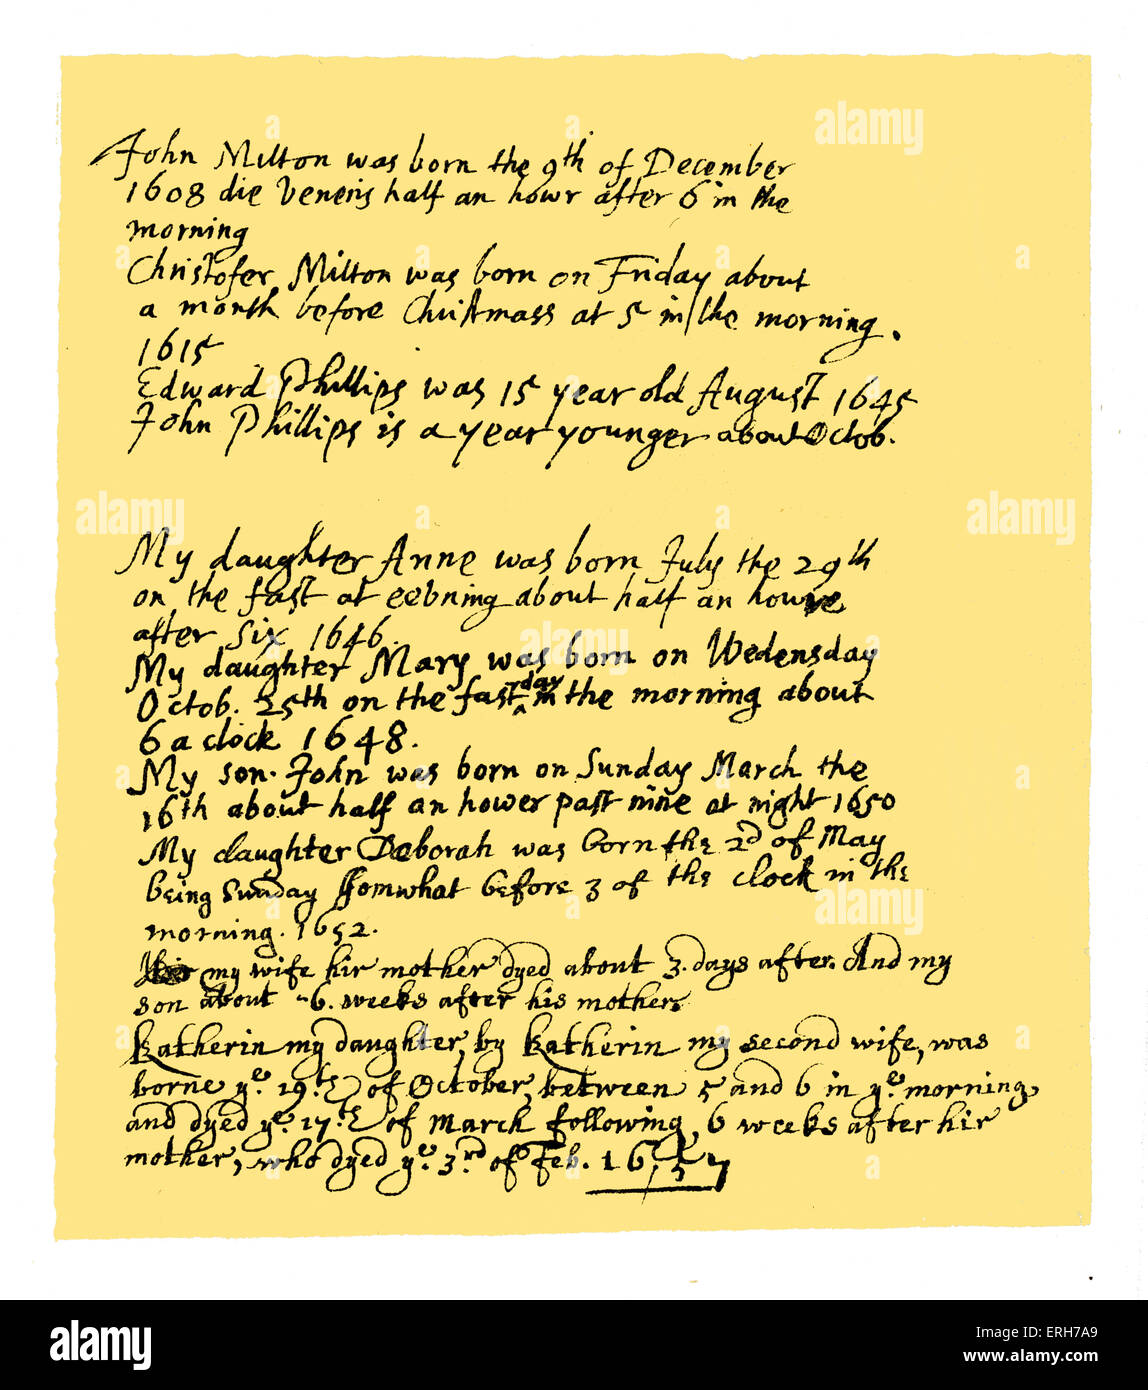 John Milton was born the 9th of December
1608 die Veneris half an howr after 6 in the
morning
Christofer Milton was born on Friday about
a month before Christmass at 5 in the morning.
1615
Edward Phillips was 15 year old August 1645
John Phillips is a year younger about Octob.
My daughter Anne was born July the 29th
on the fast at eebning about half an howre
after six 1646.
My daughter Mary was born on Wedensday
Octob. 25th on the fast day in the morning about
6 a clock 1648.
My son John was born on Sunday March the
16th about half an hower past nine at night 1650
My daughter Deborah was born the 2d of May
being Sunday somwhat before 3 of the clock in the
morning. 1652.
my wife hir mother dyed about 3. days after. And my
son about 6. weeks after his mother
Katherin my daughter, by Katherin my second wife, was
borne ye. 19th of October, between 5 and 6 in ye. morning,
and dyed ye. 17th of March following, 6 weeks after hir
mother, who dyed ye. 3rd of Feb. 1657
alamy
Image ID: ERH7A9
www.alamy.com